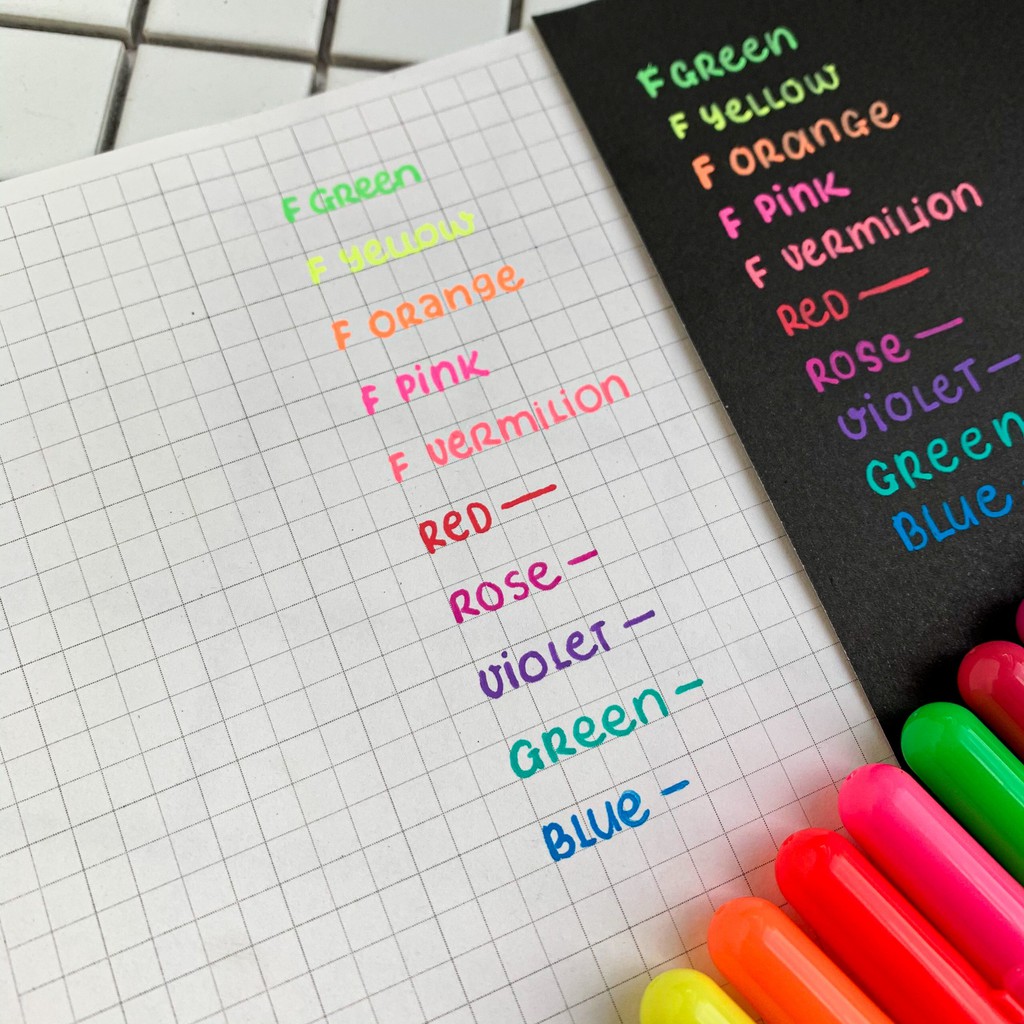 F GReen
F yellow
F ORange
F Pink
F veRmilion
ReD —
ROSe —
violeT —
GReen —
BLue —
F GReen
F yellow
F ORanGe
F Pink
F veRmiLion
ReD —
ROSe —
violeT —
GReen
BLue